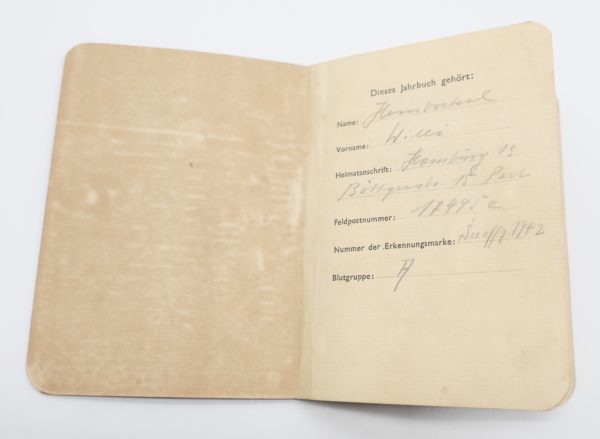 Dieses Jahrbuch gehört:
Name: Heinbockel
Vorname: Willi
Heimatanschrift: Hamburg 13
Böttgerstr. 15 Part
Feldpostnummer: 17995 c
Nummer der Erkennungsmarke: 1942
Blutgruppe: A